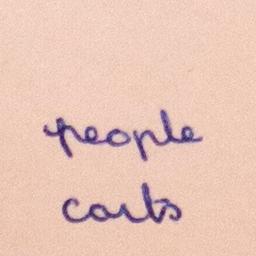 people
carts